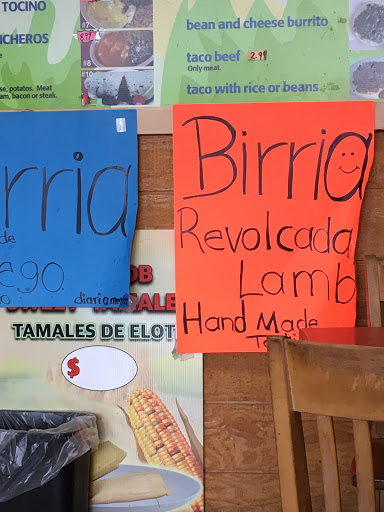 TOCINO
NCHEROS
8.99
#8
#9
#10
se, potatoes. Meat
am, bacon or steak.
bean and cheese burrito
taco beef 2.99
Only meat.
taco with rice or beans
rria
de
ego.
o diariamente
Birria
Revolcada
Lamb
Hand Made
OB
TAMALES DE ELOT
$